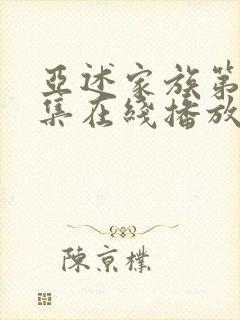 亞述家族第
集在綫播放
陳京樸